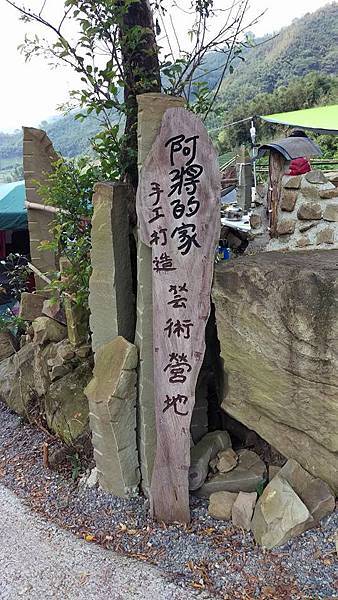 阿將的家
手工打造
芸術營地